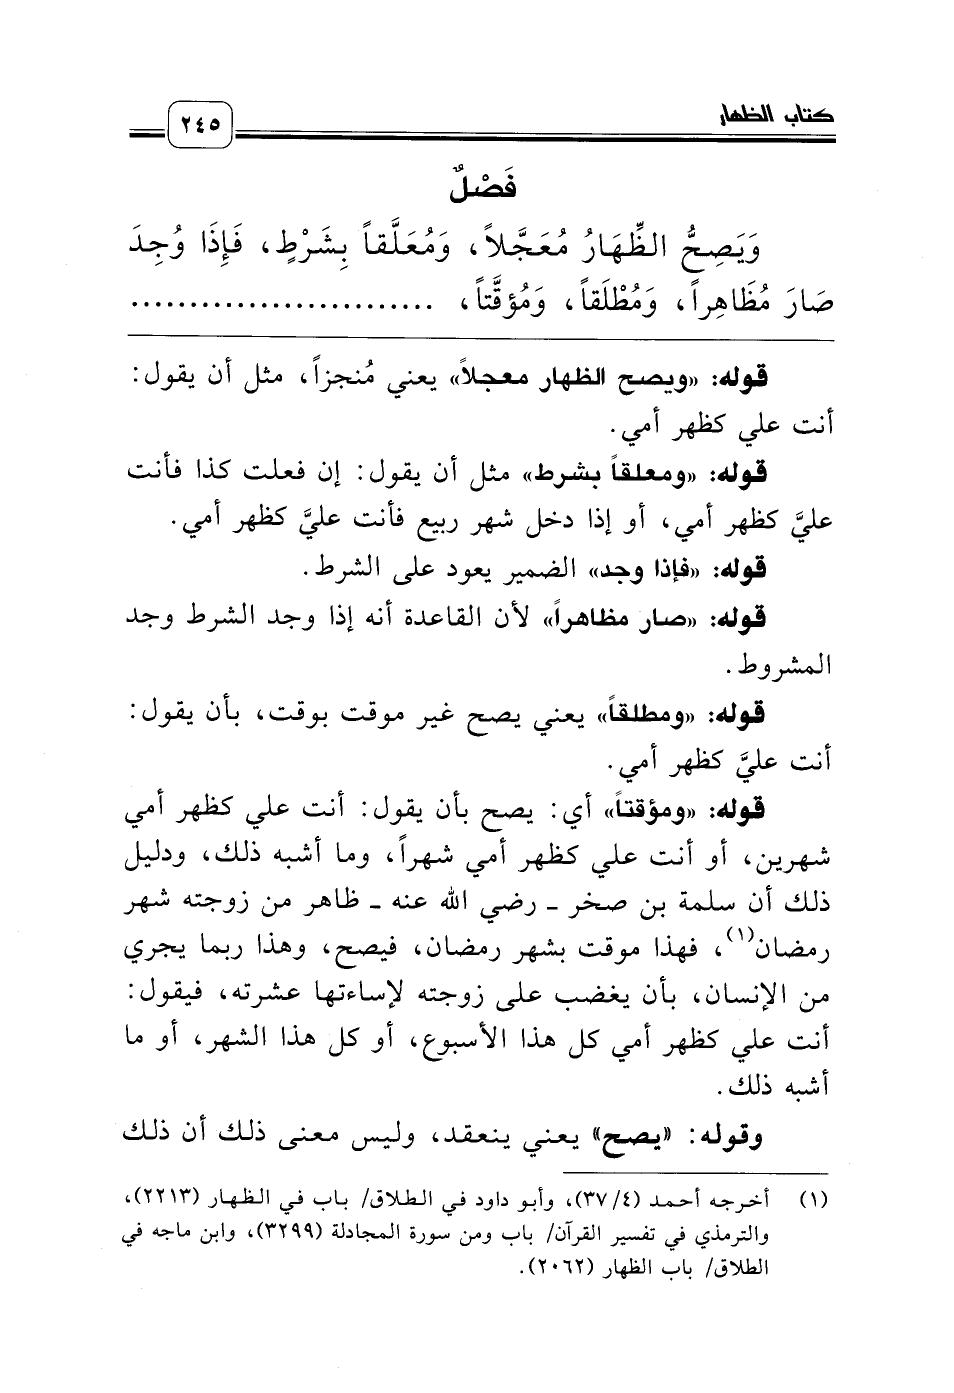 كتاب الظهار
٢٤٥
فَصْلٌ
وَيَصِحُّ الظِّهَارُ مُعَجَّلاً، وَمُعَلَّقاً بِشَرْطٍ، فَإِذَا وُجِدَ
صَارَ مُظَاهِراً، وَمُطْلَقاً، وَمُؤقَّتاً، ..........................
قوله: «ويصح الظهار معجلاً» يعني مُنجزاً، مثل أن يقول:
أنت علي كظهر أمي.
قوله: «ومعلقاً بشرط» مثل أن يقول: إن فعلت كذا فأنت
عليَّ كظهر أمي، أو إذا دخل شهر ربيع فأنت عليَّ كظهر أمي.
قوله: «فإذا وجد» الضمير يعود على الشرط.
قوله: «صار مظاهراً» لأن القاعدة أنه إذا وجد الشرط وجد
المشروط.
قوله: «ومطلقاً» يعني يصح غير موقت بوقت، بأن يقول:
أنت عليَّ كظهر أمي.
قوله: «ومؤقتاً» أي: يصح بأن يقول: أنت علي كظهر أمي
شهرين، أو أنت علي كظهر أمي شهراً، وما أشبه ذلك، ودليل
ذلك أن سلمة بن صخر ـ رضي الله عنه ـ ظاهر من زوجته شهر
رمضان(١)، فهذا موقت بشهر رمضان، فيصح، وهذا ربما يجري
من الإنسان، بأن يغضب على زوجته لإساءتها عشرته، فيقول:
أنت علي كظهر أمي كل هذا الأسبوع، أو كل هذا الشهر، أو ما
أشبه ذلك.
وقوله: «يصح» يعني ينعقد، وليس معنى ذلك أن ذلك
(١) أخرجه أحمد (٣٧/٤)، وأبو داود في الطلاق/ باب في الظهار (٢٢١٣)،
والترمذي في تفسير القرآن/ باب ومن سورة المجادلة (٣٢٩٩)، وابن ماجه في
الطلاق/ باب الظهار (٢٠٦٢).